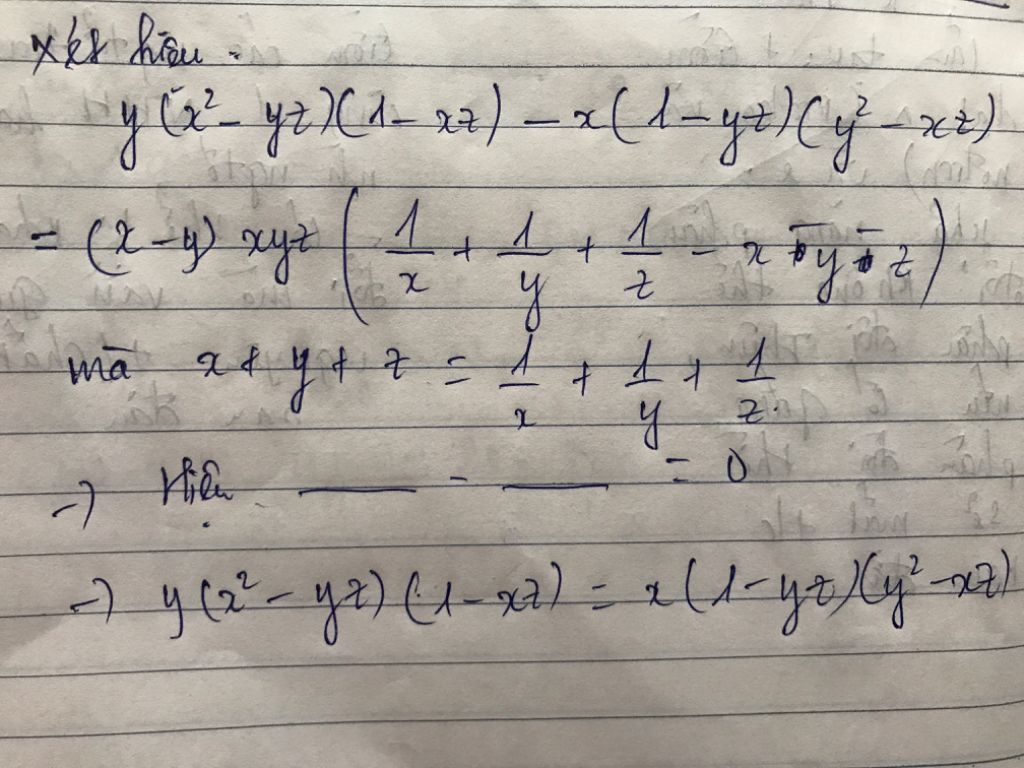 Xét hiệu :
y(x² - yz)(1 - xz) - x(1 - yz)(y² - xz)
= (x - y) xyz (1/x + 1/y + 1/z - x - y - z)
mà x + y + z = 1/x + 1/y + 1/z.
→ Hiệu ____ - ____ = 0
→ y(x² - yz)(1 - xz) = x(1 - yz)(y² - xz)